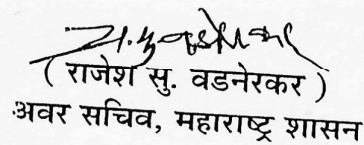 ( राजेश सु. वडनेरकर )
अवर सचिव, महाराष्ट्र शासन